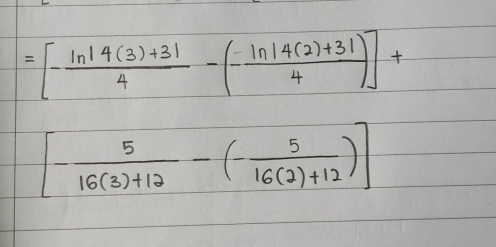 = [ - ln|4(3)+3| / 4 - ( - ln|4(2)+3| / 4 ) ] +
[ - 5 / 16(3)+12 - ( - 5 / 16(2)+12 ) ]